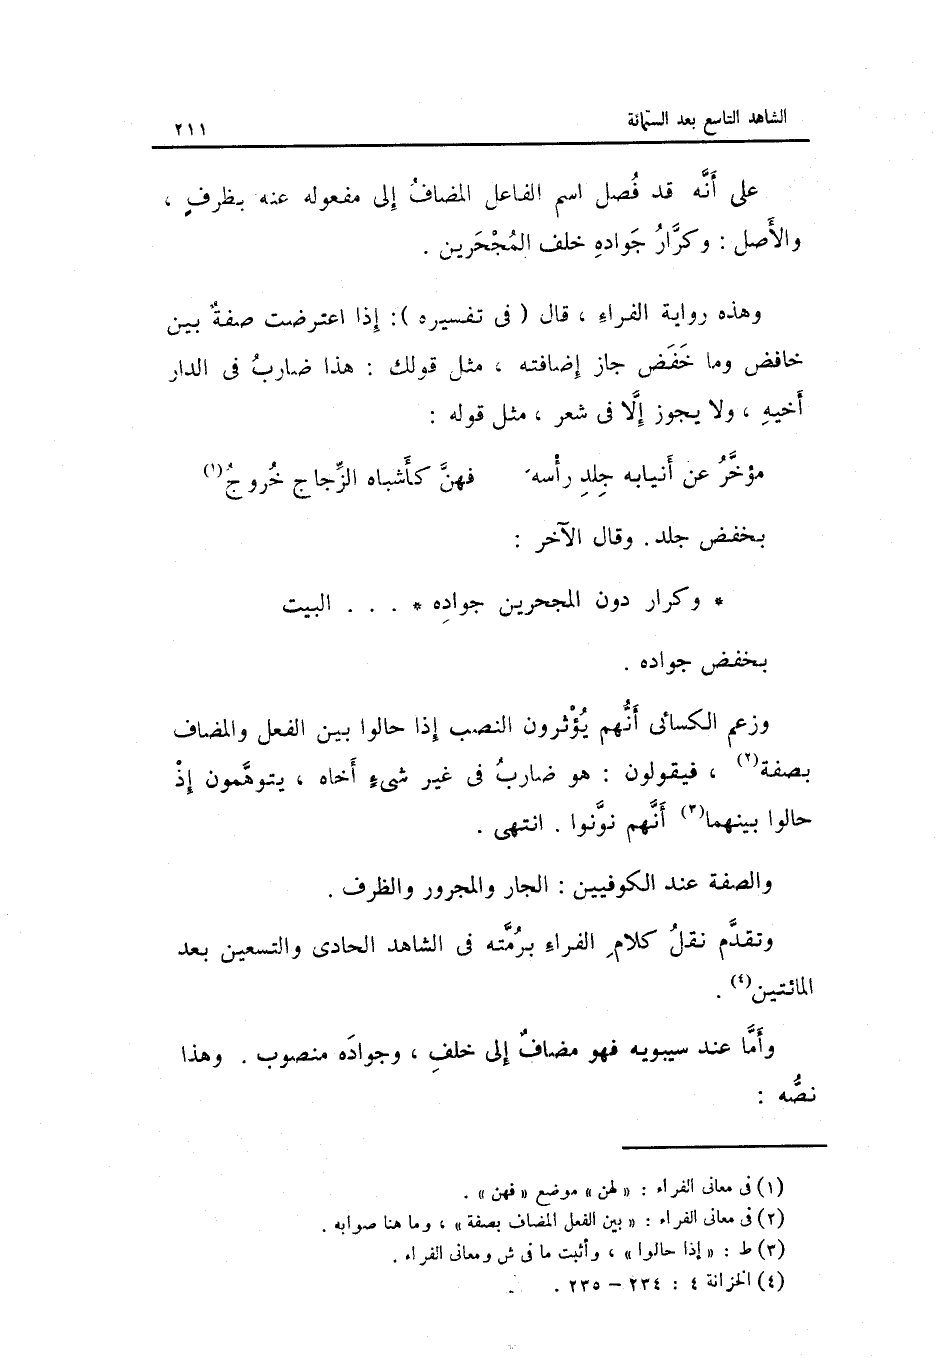 الشاهد التاسع بعد الستمائة ٢١١
على أَنَّه قد فُصل اسم الفاعل المضافُ إِلى مفعوله عنه بظرفٍ ،
والأَصل : وكرَّارُ جَوادهِ خلف المُجْحَرين .
وهذه رواية الفراءِ ، قال ( فى تفسيره ) : إِذا اعترضت صفةٌ بين
خافض وما خَفَض جاز إِضافته ، مثل قولك : هذا ضاربُ فى الدار
أَخيهِ ، ولا يجوز إِلَّا فى شعر ، مثل قوله :
مؤخَّرُ عن أَنيابه جِلدِ رأْسهِ فهنَّ كأَشباه الزِّجاج خُروجُ(١)
بخفض جلد . وقال الآخر :
* وكرار دون المجحرين جوادِه * . . . البيت
بخفض جواده .
وزعم الكسائى أَنَّهم يُؤْثرون النصب إِذا حالوا بين الفعل والمضاف
بصفة(٢) ، فيقولون : هو ضاربُ فى غير شىءٍ أَخاه ، يتوهَّمون إِذْ
حالوا بينهما(٣) أَنَّهم نوَّنوا . انتهى .
والصفة عند الكوفيين : الجار والمجرور والظرف .
وتقدَّم نقلُ كلامِ الفراءِ برُمَّته فى الشاهد الحادى والتسعين بعد
المائتين(٤) .
وأَمَّا عند سيبويه فهو مضافٌ إِلى خلفِ ، وجوادَه منصوب . وهذا
نصُّه :
(١) فى معانى الفراء : « لهن » موضع « فهن » .
(٢) فى معانى الفراء : « بين الفعل المضاف بصفة » ، وما هنا صوابه .
(٣) ط : « إذا حالوا » ، وأثبت ما فى ش ومعانى الفراء .
(٤) الخزانة ٤ : ٢٣٤ – ٢٣٥ .